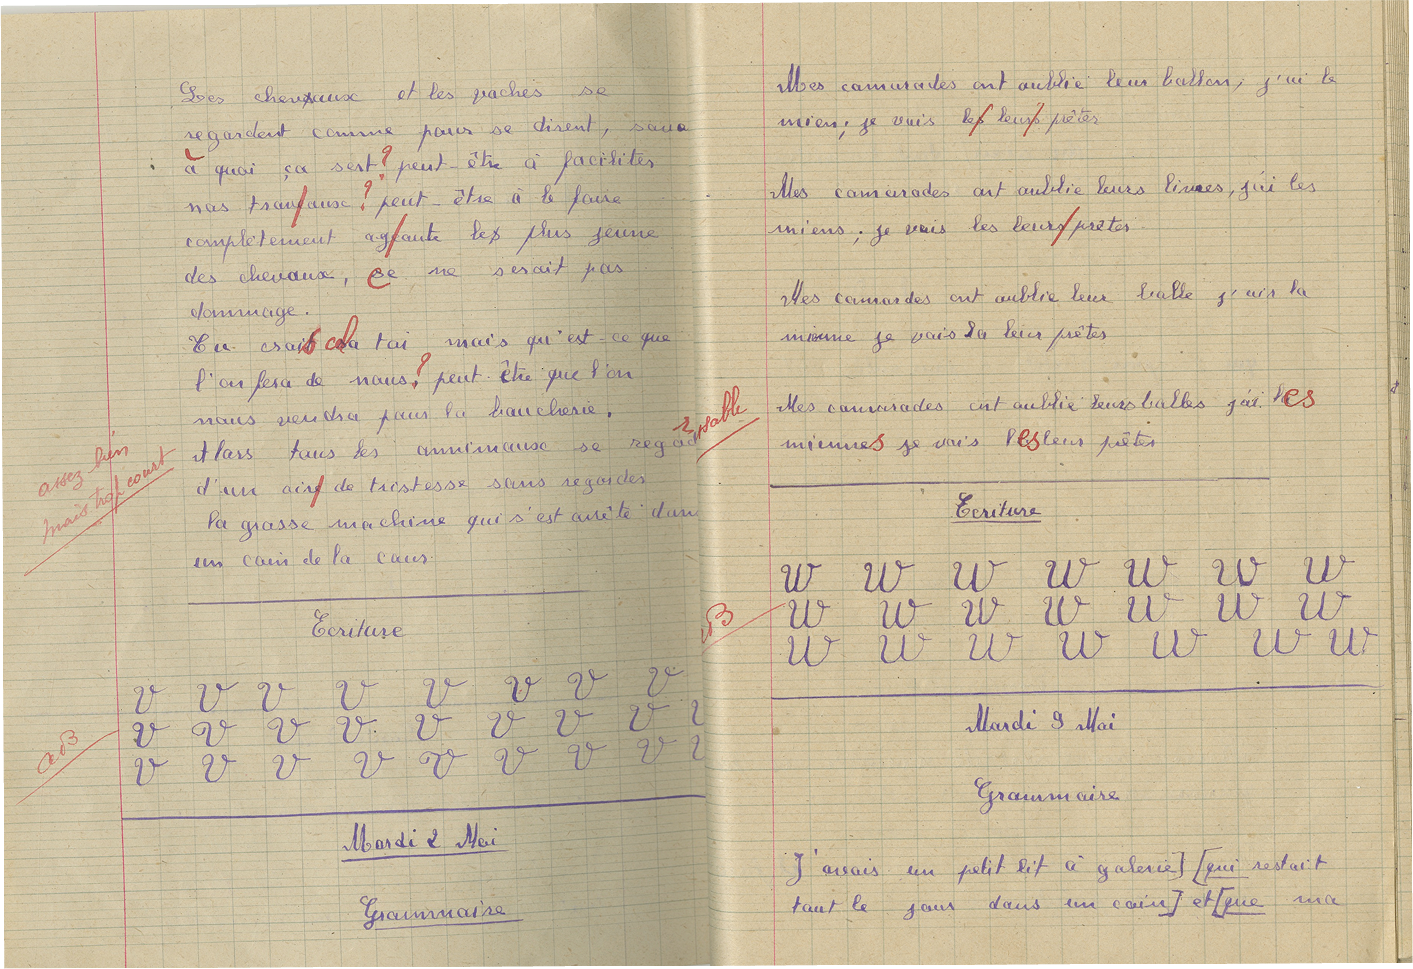 Les chevaux et les vaches se
regardent comme pour se dirent, sava
à quoi ça sert ? peut-être à faciliter
nos travaux ? peut-être à le faire
complètement
des chevaux, ce ne serait pas
dommage.
Tu crois cela toi mais qu'est-ce que
l'on fera de nous ? peut être que l'on
nous vendra pour la boucherie.
Alors tous les annimaux se regard
d'un air de tristesse sans regarder
la grosse machine qui s'est arrêté dans
un coin de la cour.
assez bien
mais trop court
Ecriture
v v v v v v v v
v v v v v v v v v
v v v v v v v v v
aB
Mardi 2 Mai
Grammaire
Mes camarades ont oublié leur ballon, j'ai le
mien, je vais les leurs prêter
Mes camarades ont oublié leurs livres, j'ai les
miens, je vais les leurs prêter
Mes camardes ont oublié leur balle j'ais la
mienne je vais la leur prêter
Mes camarades ont oublié leurs balles j'ai les
miennes je vais les leur prêter
passable
Ecriture
w w w w w w w
w w w w w w w
w w w w w w w
B
Mardi 9 Mai
Grammaire
J'avais un petit lit à galerie] [qui restait
tout le jour dans un coin] et [que ma